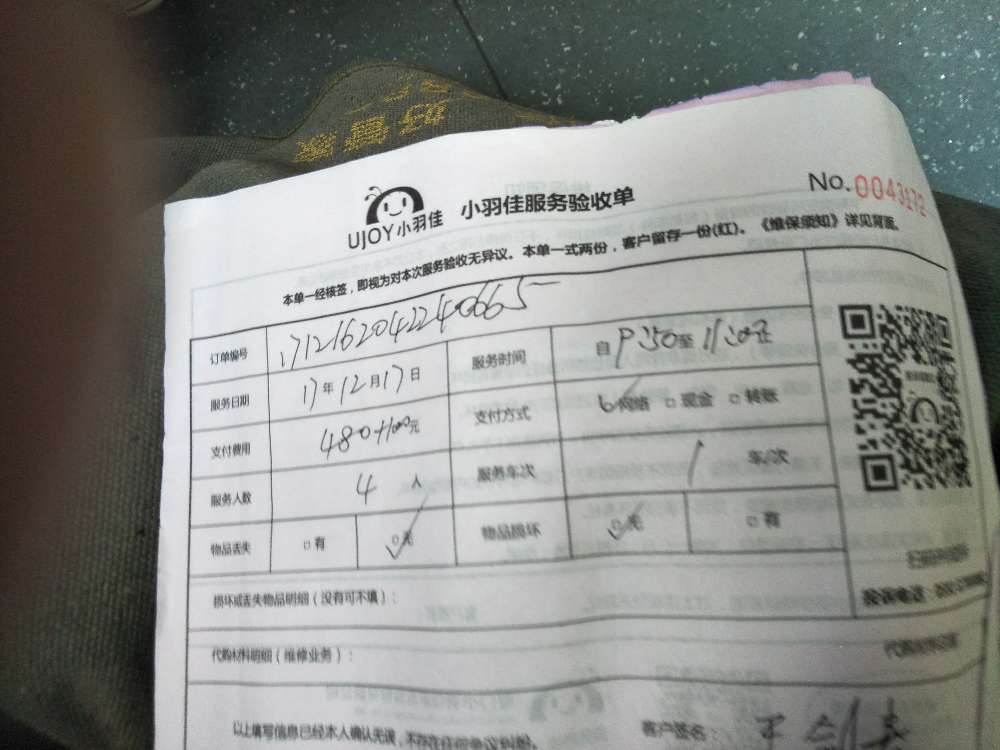 好管家
UJOY小羽佳 小羽佳服务验收单 No.0043172
本单一经核签，即视为对本次服务验收无异议。本单一式两份，客户留存一份(红)。《维保须知》详见背面。
订单编号 171216204224066５
服务日期 17年12月17日 服务时间 自 9:50至11:20止
支付费用 480+100元 支付方式 网络 □ 现金 □ 转账
服务人数 4 人 服务车次 1 车/次
物品丢失 □ 有 □ 无 物品损坏 □ 无 □ 有
损坏或丢失物品明细（没有可不填）：
投诉电话：
代购材料明细（维修业务）：
以上填写信息已经本人确认无误，不存在任何争议纠纷。 客户签名：